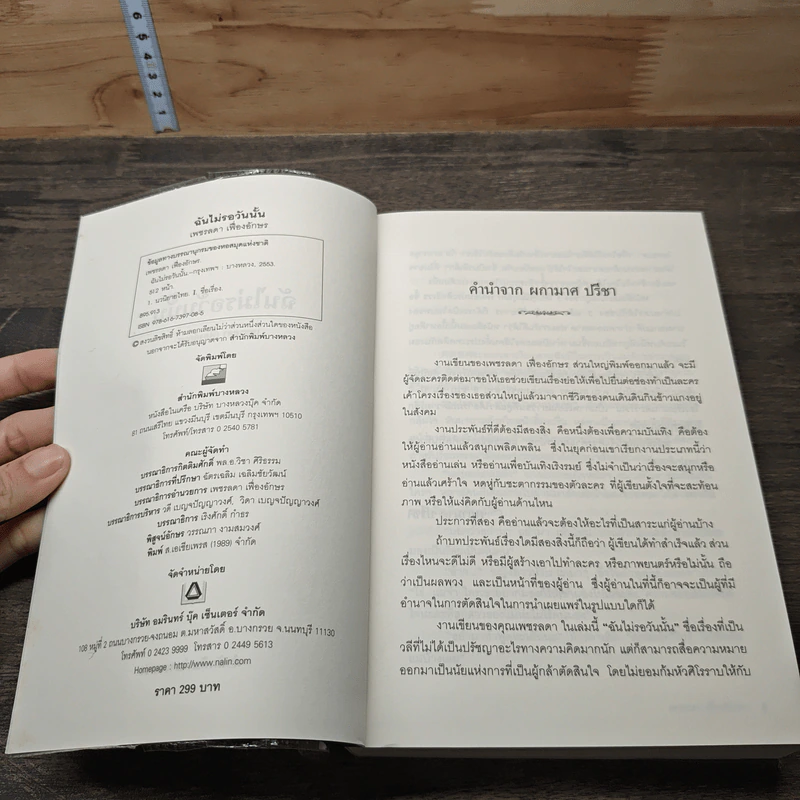 6 5 4 3 2 1
ฉันไม่รอวันนั้น
เพชรลดา เฟื่องอักษร
ข้อมูลทางบรรณานุกรมของหอสมุดแห่งชาติ
เพชรลดา เฟื่องอักษร.
ฉันไม่รอวันนั้น.--กรุงเทพฯ : บางหลวง, 2553.
512 หน้า.
1. นวนิยายไทย. I. ชื่อเรื่อง.
895.913
ISBN 978-616-7397-08-5
© สงวนลิขสิทธิ์ ห้ามลอกเลียนไม่ว่าส่วนหนึ่งส่วนใดของหนังสือ
นอกจากจะได้รับอนุญาตจาก สำนักพิมพ์บางหลวง
จัดพิมพ์โดย
สำนักพิมพ์บางหลวง
หนังสือในเครือ บริษัท บางหลวงบุ๊ค จำกัด
81 ถนนเสรีไทย แขวงมีนบุรี เขตมีนบุรี กรุงเทพฯ 10510
โทรศัพท์/โทรสาร 0 2540 5781
คณะผู้จัดทำ
บรรณาธิการกิตติมศักดิ์ พล.อ.วิชา ศิริธรรม
บรรณาธิการที่ปรึกษา ฉัตรเฉลิม เฉลิมชัยวัฒน์
บรรณาธิการอำนวยการ เพชรลดา เฟื่องอักษร
บรรณาธิการบริหาร วดี เบญจปัญญาวงศ์, วิดา เบญจปัญญาวงศ์
บรรณาธิการ เริงศักดิ์ กำธร
พิสูจน์อักษร วรรณภา งามสมวงศ์
พิมพ์ ส.เอเชียเพรส (1989) จำกัด
จัดจำหน่ายโดย
บริษัท อมรินทร์ บุ๊ค เซ็นเตอร์ จำกัด
108 หมู่ที่ 2 ถนนบางกรวย-จงถนอม ต.มหาสวัสดิ์ อ.บางกรวย จ.นนทบุรี 11130
โทรศัพท์ 0 2423 9999 โทรสาร 0 2449 5613
Homepage : http://www.nalin.com
ราคา 299 บาท
คำนำจาก ผกามาศ ปรีชา
งานเขียนของเพชรลดา เฟื่องอักษร ส่วนใหญ่พิมพ์ออกมาแล้ว จะมี
ผู้จัดละครติดต่อมาขอให้เธอช่วยเขียนเรื่องย่อให้เพื่อไปยื่นต่อช่องทำเป็นละคร
เค้าโครงเรื่องของเธอส่วนใหญ่แล้วมาจากชีวิตของคนเดินดินกินข้าวแกงอยู่
ในสังคม
งานประพันธ์ที่ดีต้องมีสองสิ่ง คือหนึ่งต้องเพื่อความบันเทิง คือต้อง
ให้ผู้อ่านอ่านแล้วสนุกเพลิดเพลิน ซึ่งในยุคก่อนเขาเรียกงานประเภทนี้ว่า
หนังสืออ่านเล่น หรืออ่านเพื่อบันเทิงเริงรมย์ ซึ่งไม่จำเป็นว่าเรื่องจะสนุกหรือ
อ่านแล้วเศร้าใจ หดหู่กับชะตากรรมของตัวละคร ที่ผู้เขียนตั้งใจที่จะสะท้อน
ภาพ หรือให้แง่คิดกับผู้อ่านด้านไหน
ประการที่สอง คืออ่านแล้วจะต้องให้อะไรที่เป็นสาระแก่ผู้อ่านบ้าง
ถ้าบทประพันธ์เรื่องใดมีสองสิ่งนี้ก็ถือว่า ผู้เขียนได้ทำสำเร็จแล้ว ส่วน
เรื่องไหนจะดีไม่ดี หรือมีผู้สร้างเอาไปทำละคร หรือภาพยนตร์หรือไม่นั้น ถือ
ว่าเป็นผลพวง และเป็นหน้าที่ของผู้อ่าน ซึ่งผู้อ่านในที่นี้ก็อาจจะเป็นผู้ที่มี
อำนาจในการตัดสินใจในการนำเผยแพร่ในรูปแบบใดก็ได้
งานเขียนของคุณเพชรลดา ในเล่มนี้ “ฉันไม่รอวันนั้น” ชื่อเรื่องที่เป็น
วลีที่ไม่ได้เป็นปรัชญาอะไรทางความคิดมากนัก แต่ก็สามารถสื่อความหมาย
ออกมาเป็นนัยแห่งการที่เป็นผู้กล้าตัดสินใจ โดยไม่ยอมก้มหัวศิโรราบให้กับ